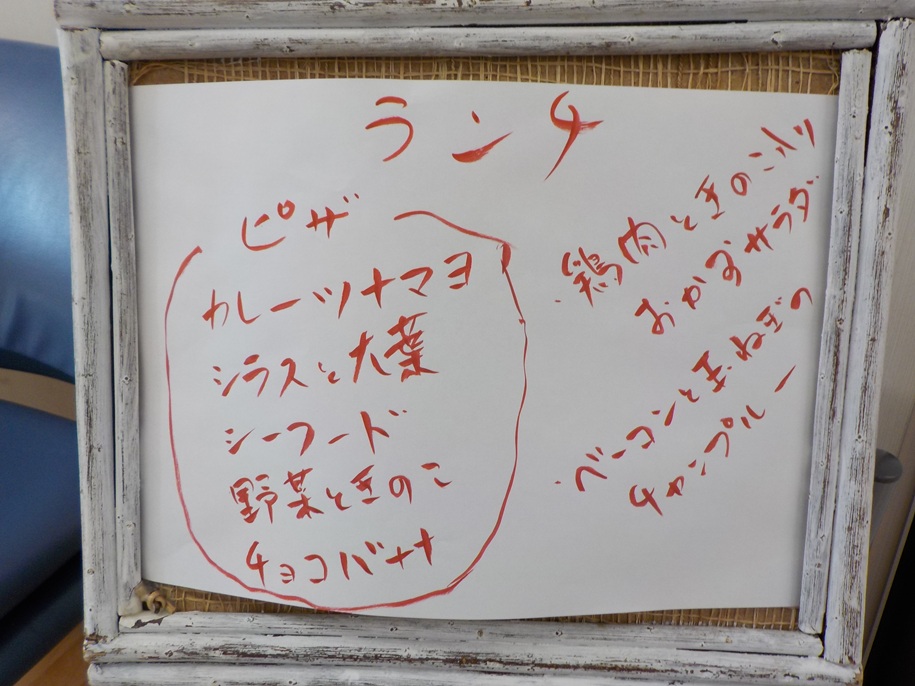 ランチ
ピザ
カレーツナマヨ
シラスと大葉
シーフード
野菜ときのこ
チョコバナナ
・鶏肉ときのこ
おかずサラダ
・ベーコンと玉ねぎの
チャンプルー